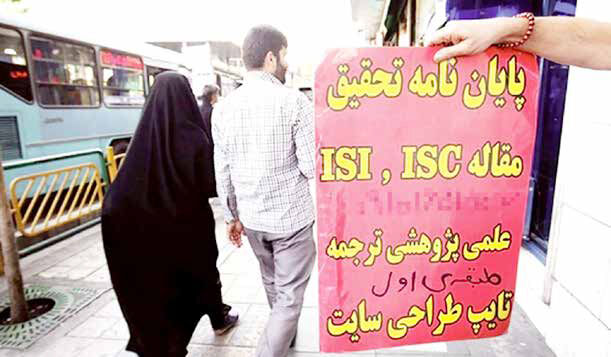 پایان نامه تحقیق
مقاله ISI , ISC
علمی پژوهشی ترجمه
طبقه‌ی اول
تایپ طراحی سایت